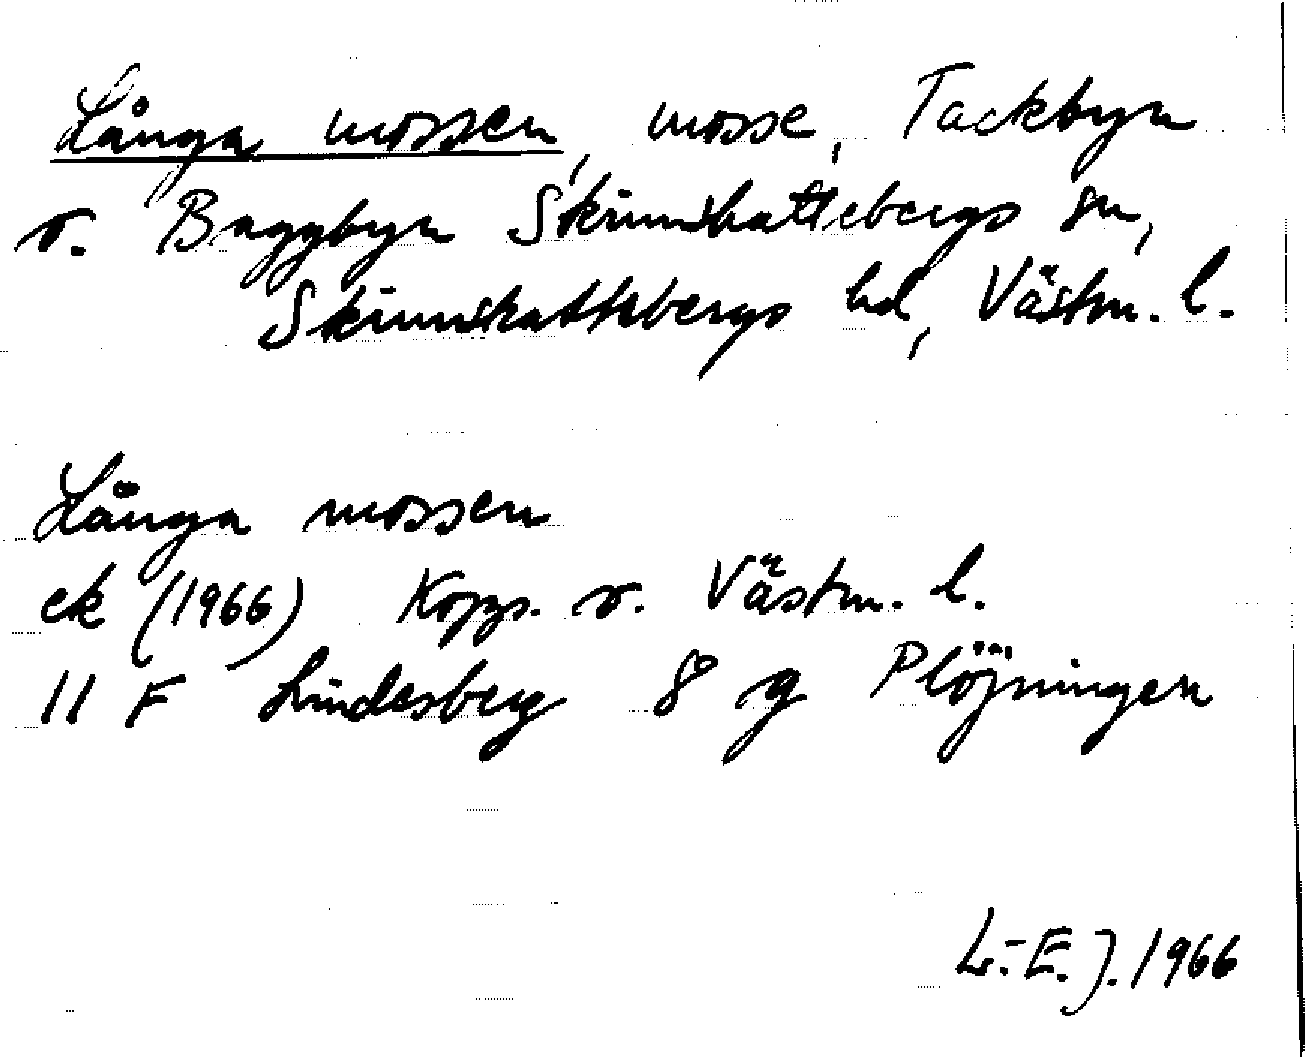 Långa mossen, mosse, Tackbyn
o. Baggbyn Skinnskattebergs sn,
Skinnskattebergs hd, Västm. l.
Långa mossen
ek (1966) Kopp. o. Västm. l.
11 F Lindesberg 8 g Plöjningen
L.-E. J. 1966